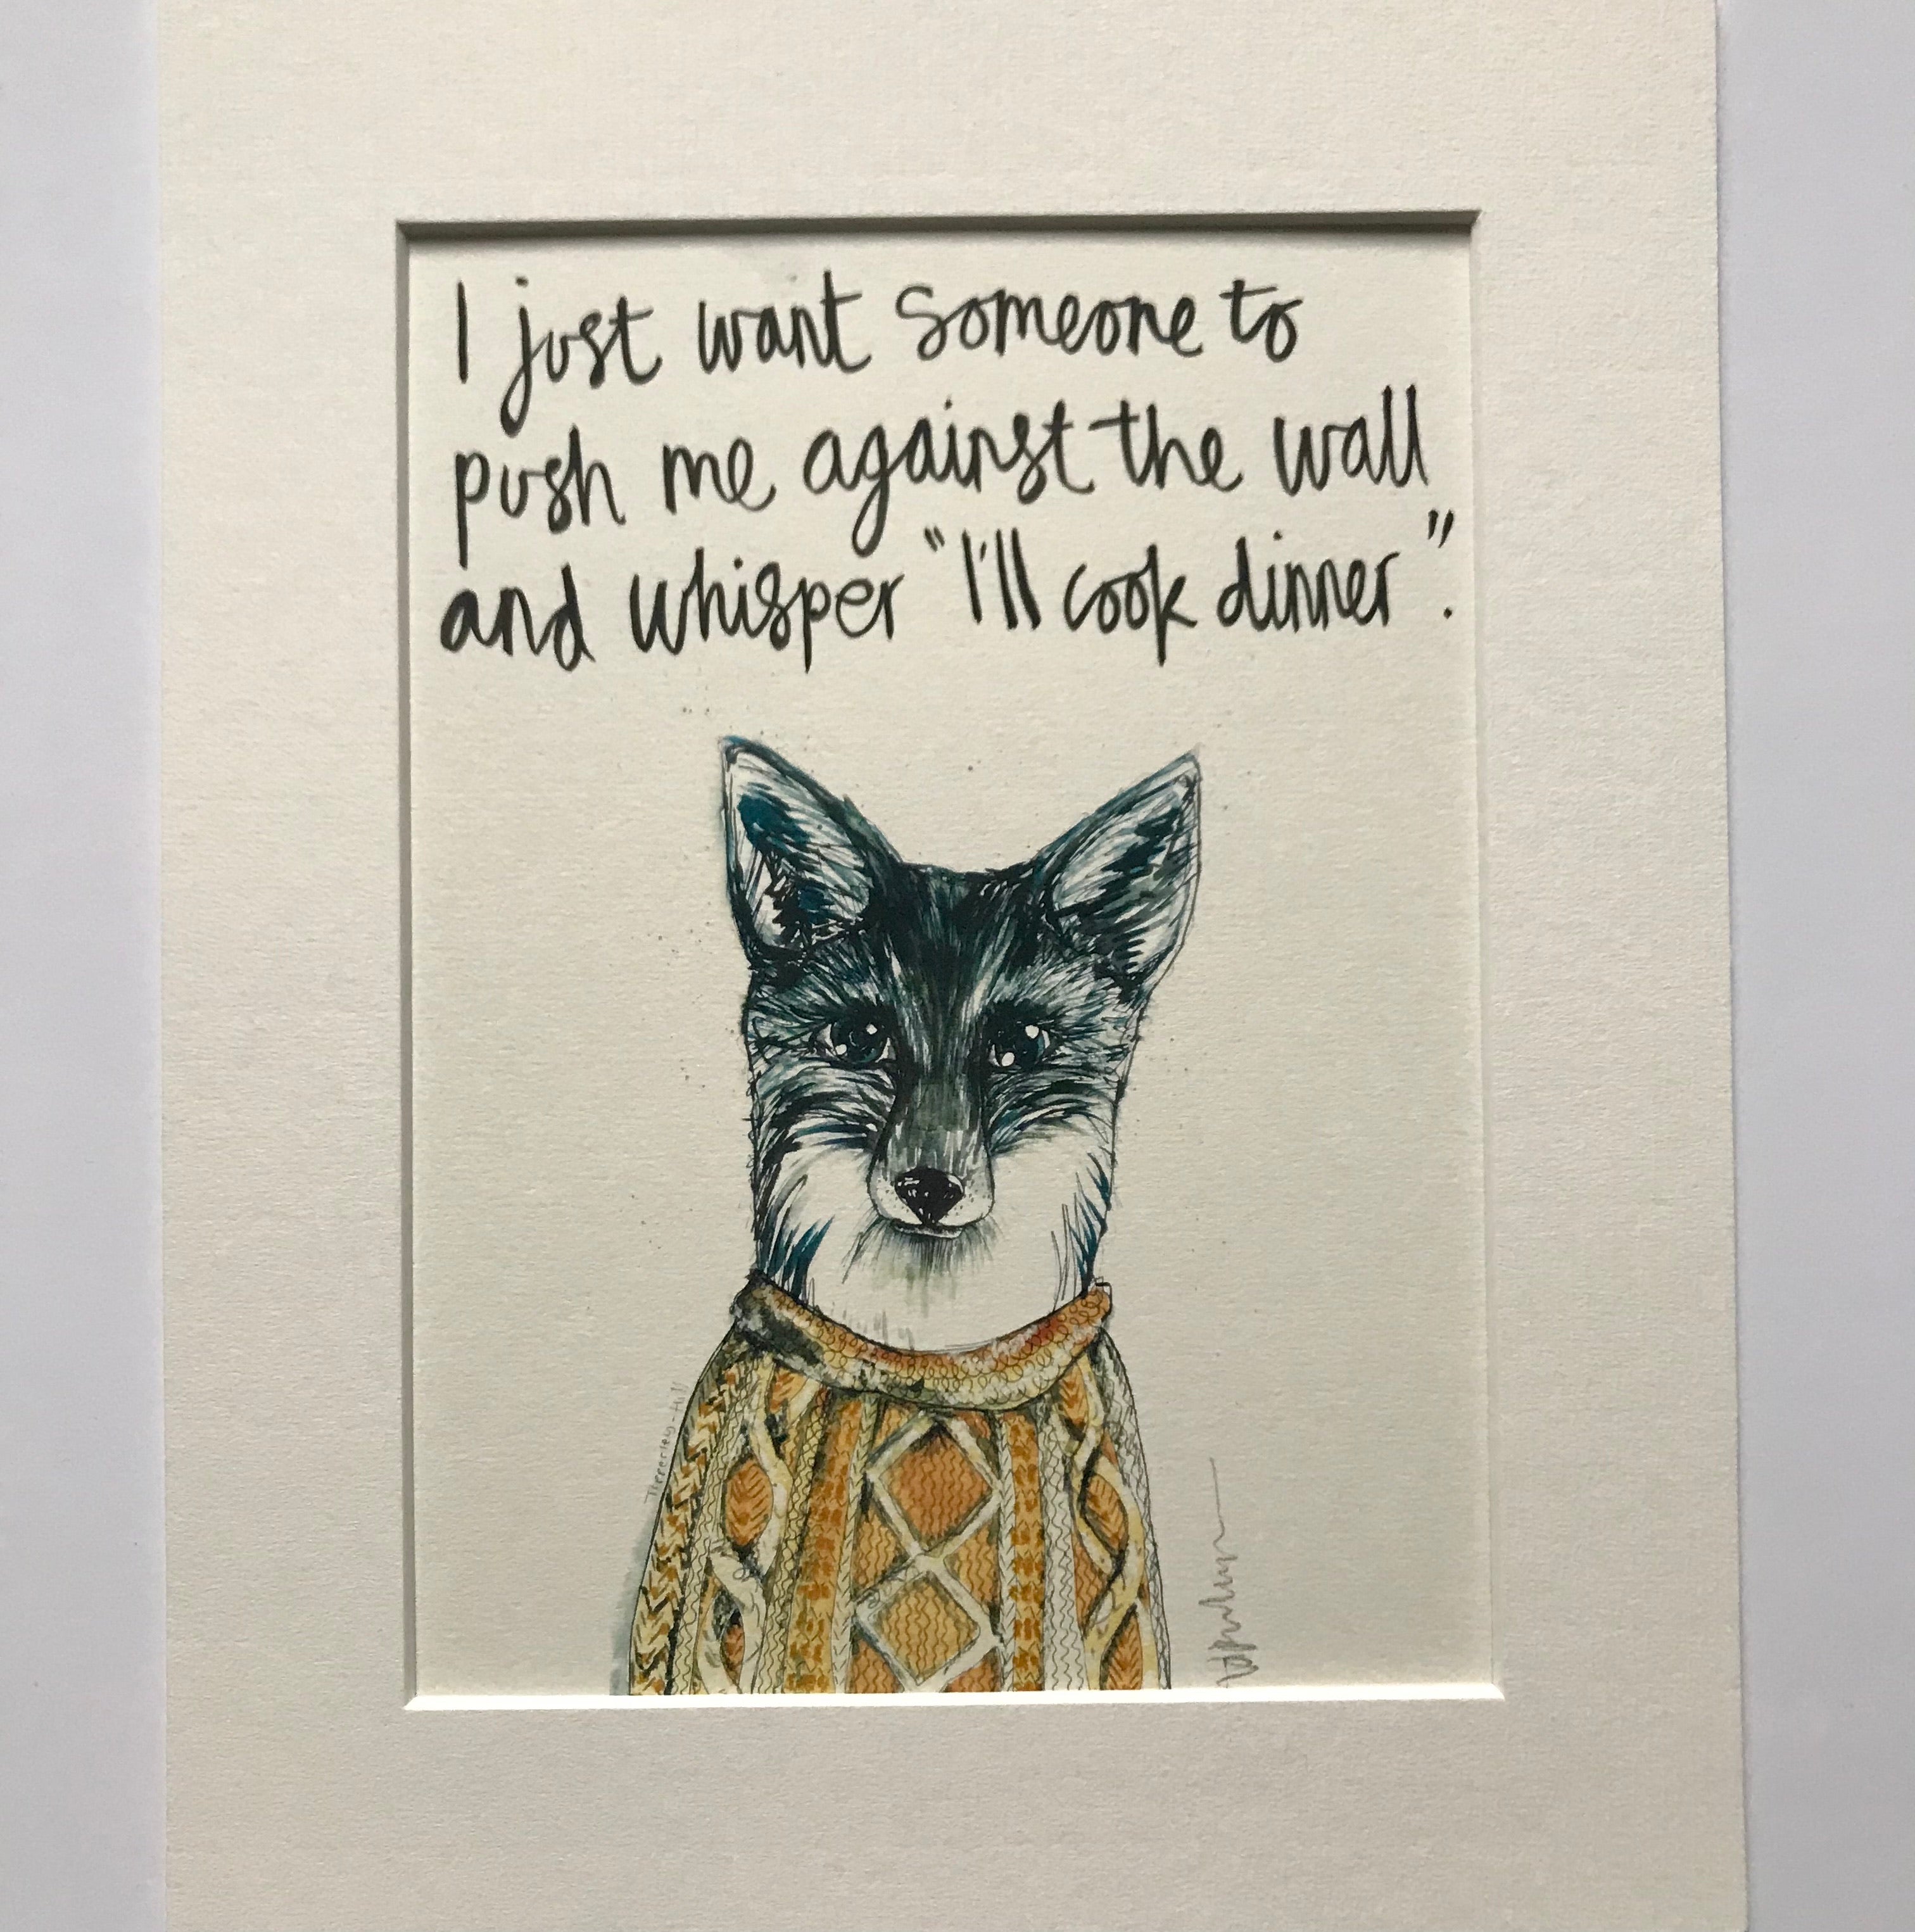 I just want someone to
push me against the wall
and whisper "I'll cook dinner".
Tipperley Hill